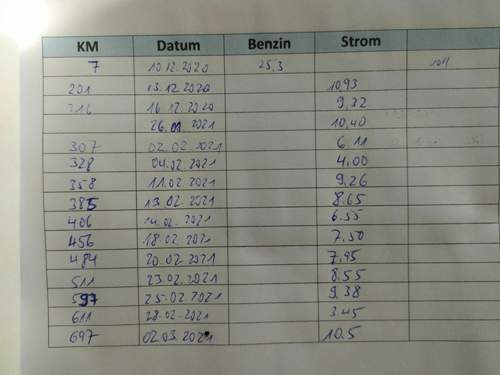 KM Datum Benzin Strom
7 10.12.2020 25,3
201 13.12.2020 10,93
216 16.12.2020 9,32
26.01.2021 10,40
307 02.02.2021 6.11
328 04.02.2021 4.00
358 11.02.2021 9.26
385 13.02.2021 8.65
406 14.02.2021 6.55
456 18.02.2021 7.50
484 20.02.2021 7,95
511 23.02.2021 8.55
597 25.02.2021 9.38
611 28.02.2021 3.45
697 02.03.2021 10.5